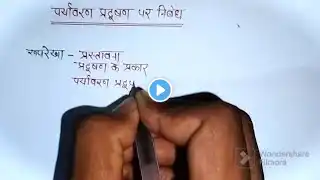 पर्यावरण प्रदूषण पर निबंध
रूपरेखा - प्रस्तावना
प्रदूषण के प्रकार
पर्यावरण प्रदूष
Wondershare
Filmora